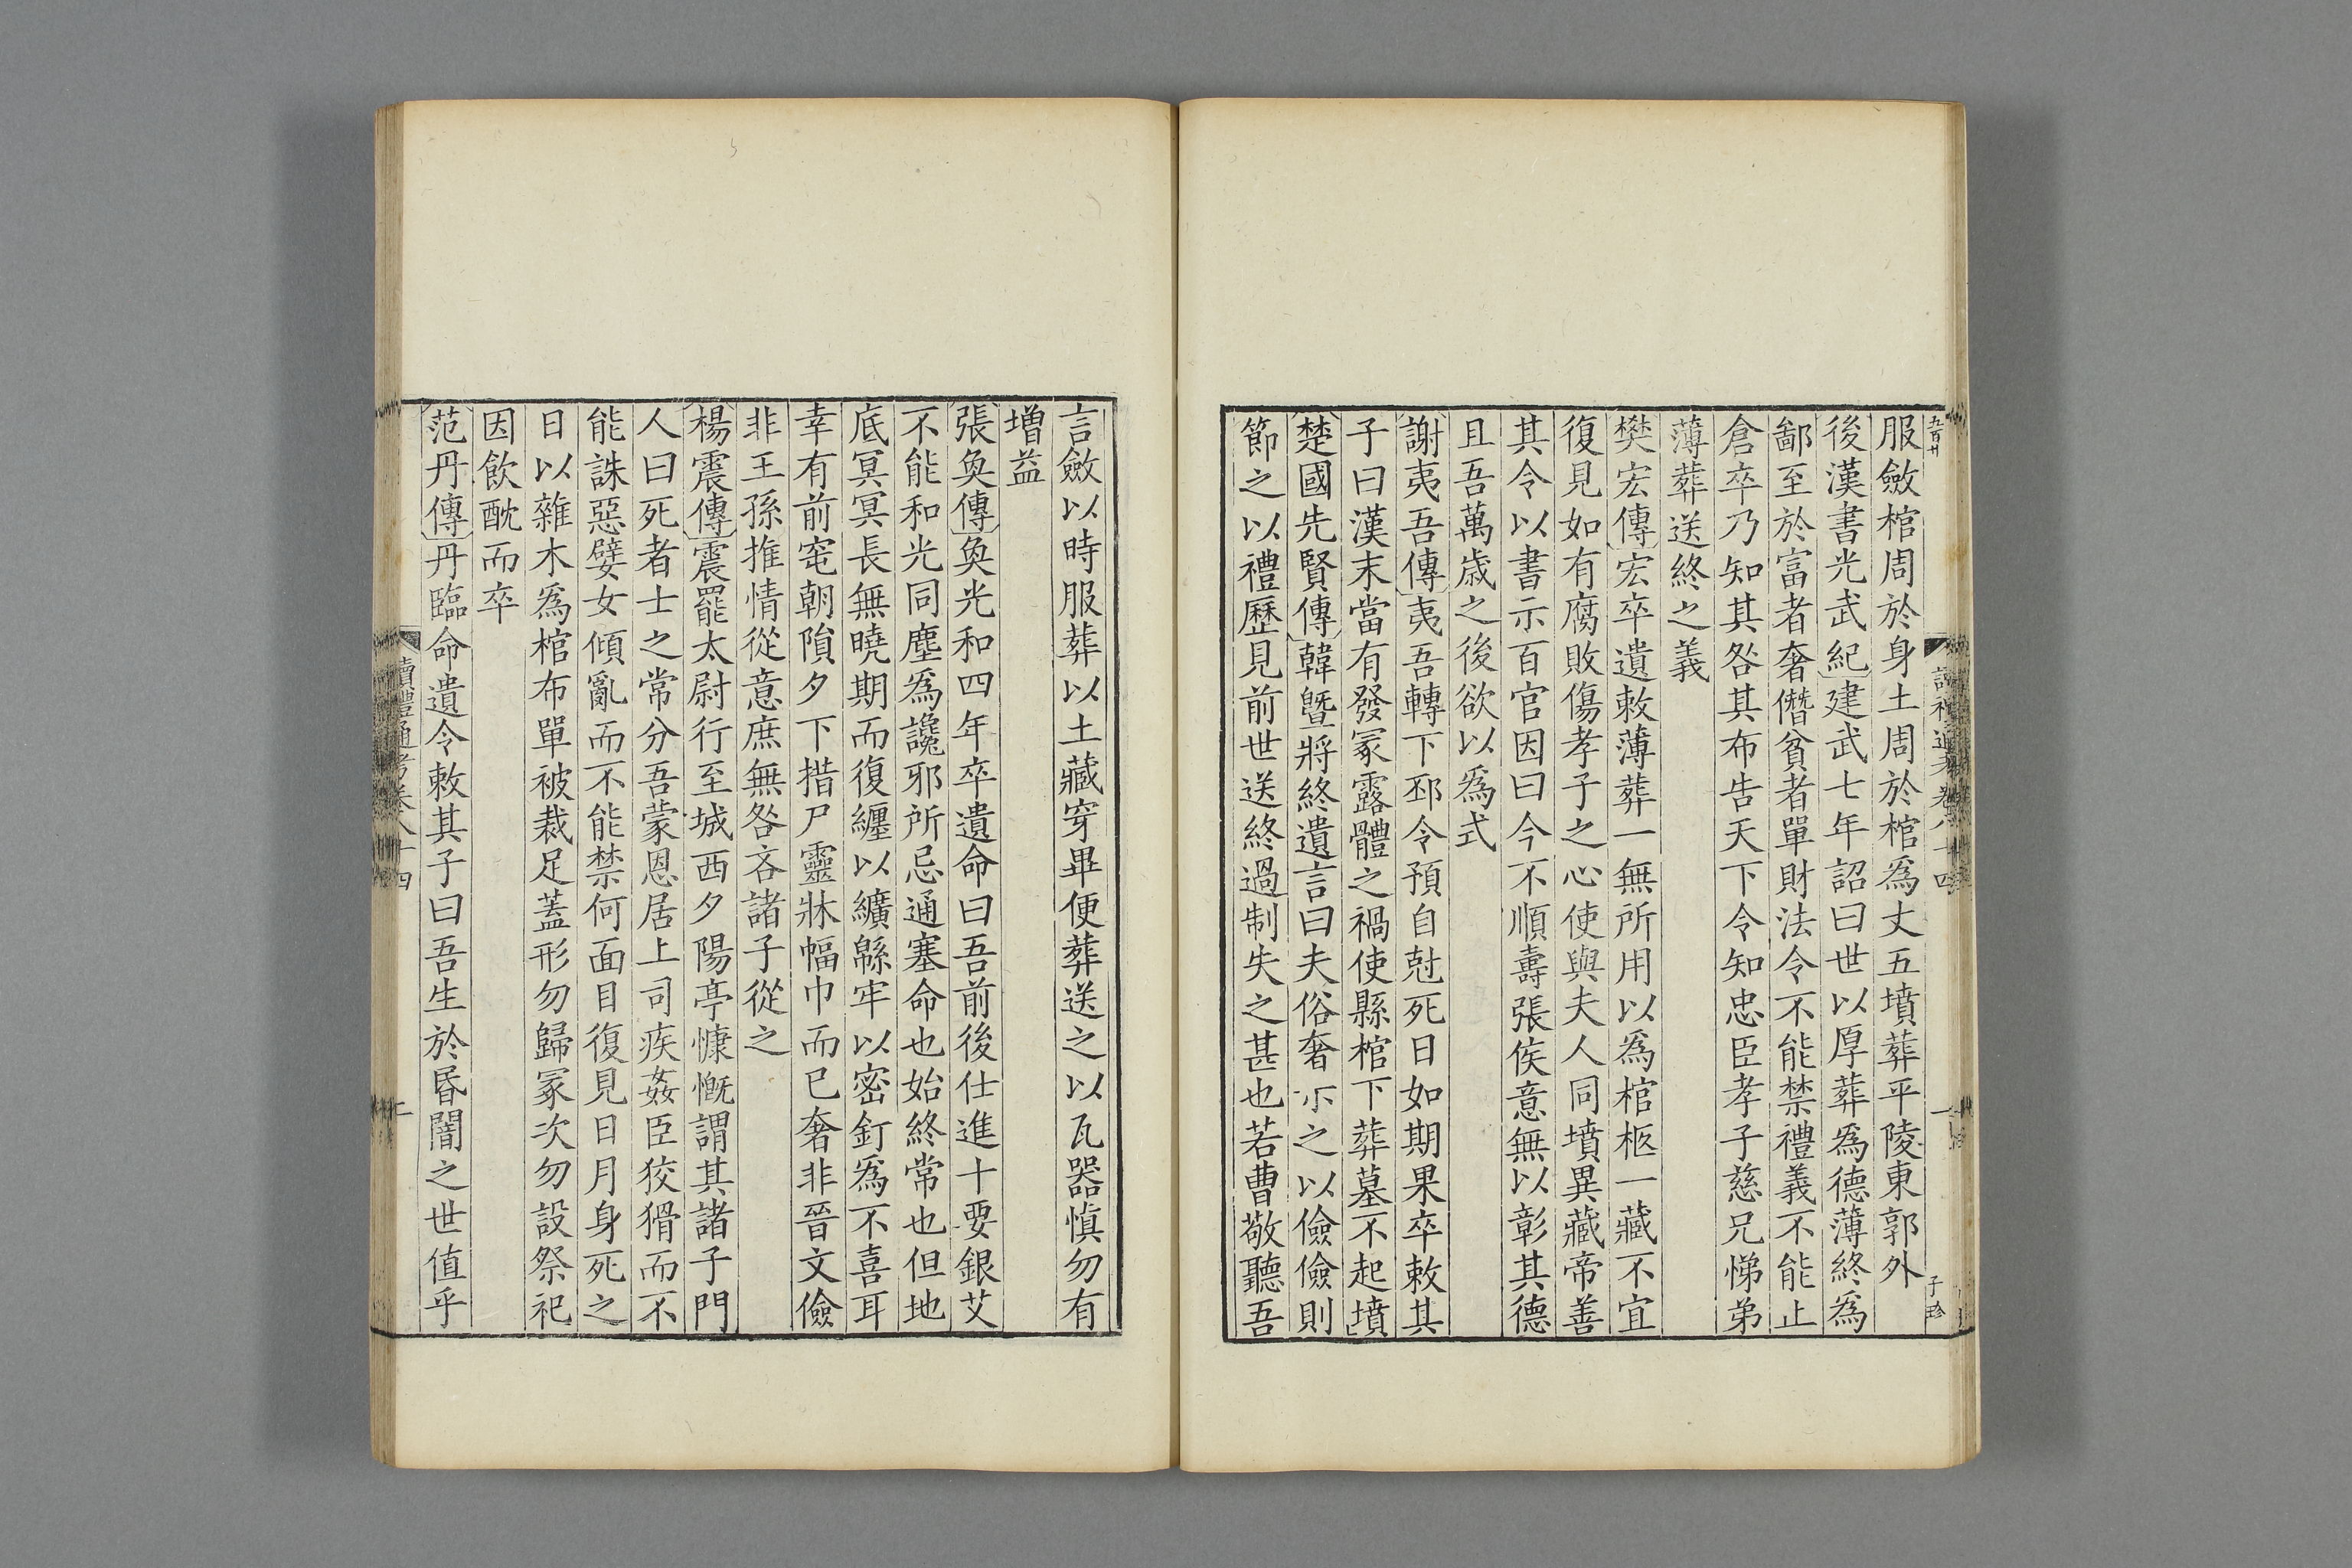 服斂棺周於身土周於棺爲丈五墳葬平陵東郭外
後漢書光武紀建武七年詔曰世以厚葬爲德薄終爲
鄙至於富者奢僭貧者單財法令不能禁禮義不能止
倉卒乃知其咎其布告天下令知忠臣孝子慈兄悌弟
薄葬送終之義
樊宏傳宏卒遺敕薄葬一無所用以爲棺柩一藏不宜
復見如有腐敗傷孝子之心使與夫人同墳異藏帝善
其令以書示百官因曰今不順壽張侯意無以彰其德
且吾萬歲之後欲以爲式
謝夷吾傳夷吾轉下邳令預自尅死日如期果卒敕其
子曰漢末當有發冢露體之禍使縣棺下葬墓不起墳
楚國先賢傳韓暨將終遺言曰夫俗奢示之以儉儉則
節之以禮歷見前世送終過制失之甚也若曹敬聽吾
言斂以時服葬以土藏穿畢便葬送之以瓦器愼勿有
增益
張奐傳奐光和四年卒遺命曰吾前後仕進十要銀艾
不能和光同塵爲讒邪所忌通塞命也始終常也但地
底冥冥長無曉期而復纏以纊緜牢以密釘爲不喜耳
幸有前窀朝隕夕下措尸靈牀幅巾而已奢非晉文儉
非王孫推情從意庶無咎吝諸子從之
楊震傳震罷太尉行至城西夕陽亭慷慨謂其諸子門
人曰死者士之常分吾蒙恩居上司疾姦臣狡猾而不
能誅惡嬖女傾亂而不能禁何面目復見日月身死之
日以雜木爲棺布單被裁足蓋形勿歸冢次勿設祭祀
因飲酖而卒
范丹傳丹臨命遺令敕其子曰吾生於昏闇之世值乎
讀禮通考卷八十四
二